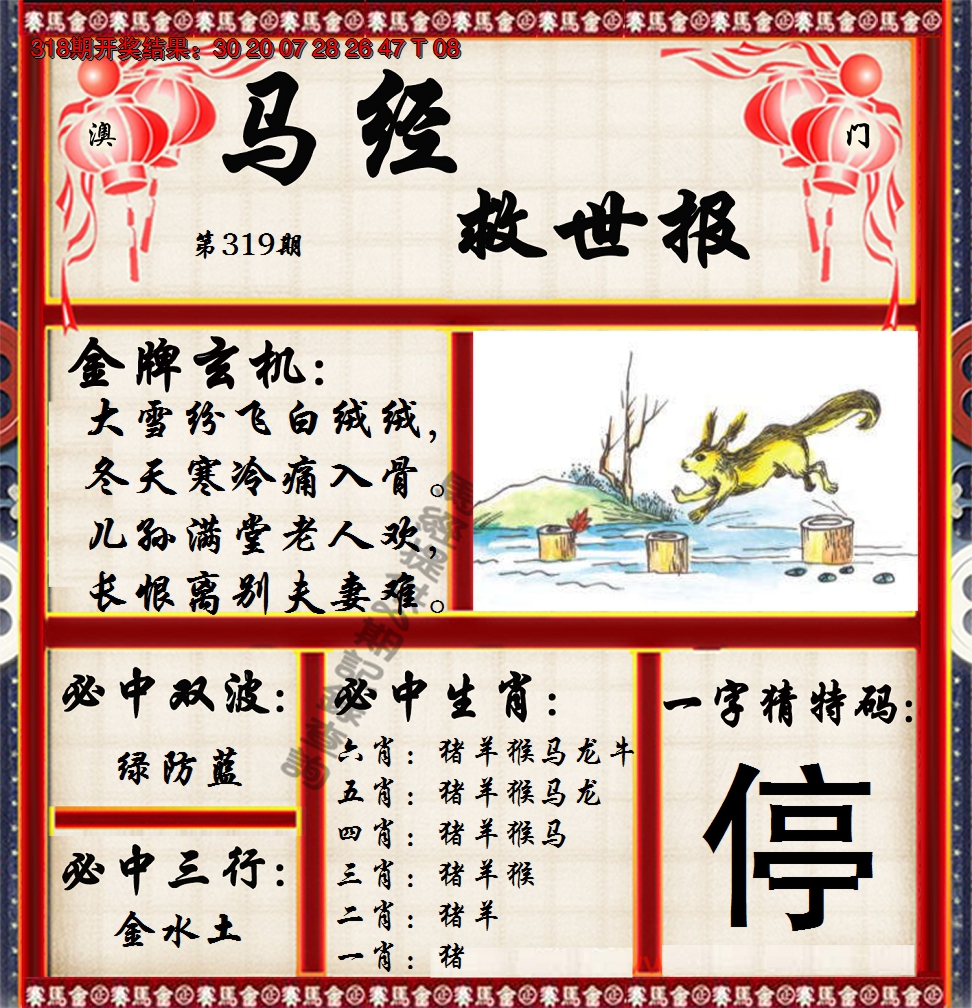 318期开奖结果：30 20 07 28 26 47 T 08
澳
门
马经
救世报
第319期
金牌玄机：
大雪纷飞白绒绒，
冬天寒冷痛入骨。
儿孙满堂老人欢，
长恨离别夫妻难。
必中双波：
绿防蓝
必中三行：
金水土
必中生肖：
六肖：猪羊猴马龙牛
五肖：猪羊猴马龙
四肖：猪羊猴马
三肖：猪羊猴
二肖：猪羊
一肖：猪
一字猜特码：
停